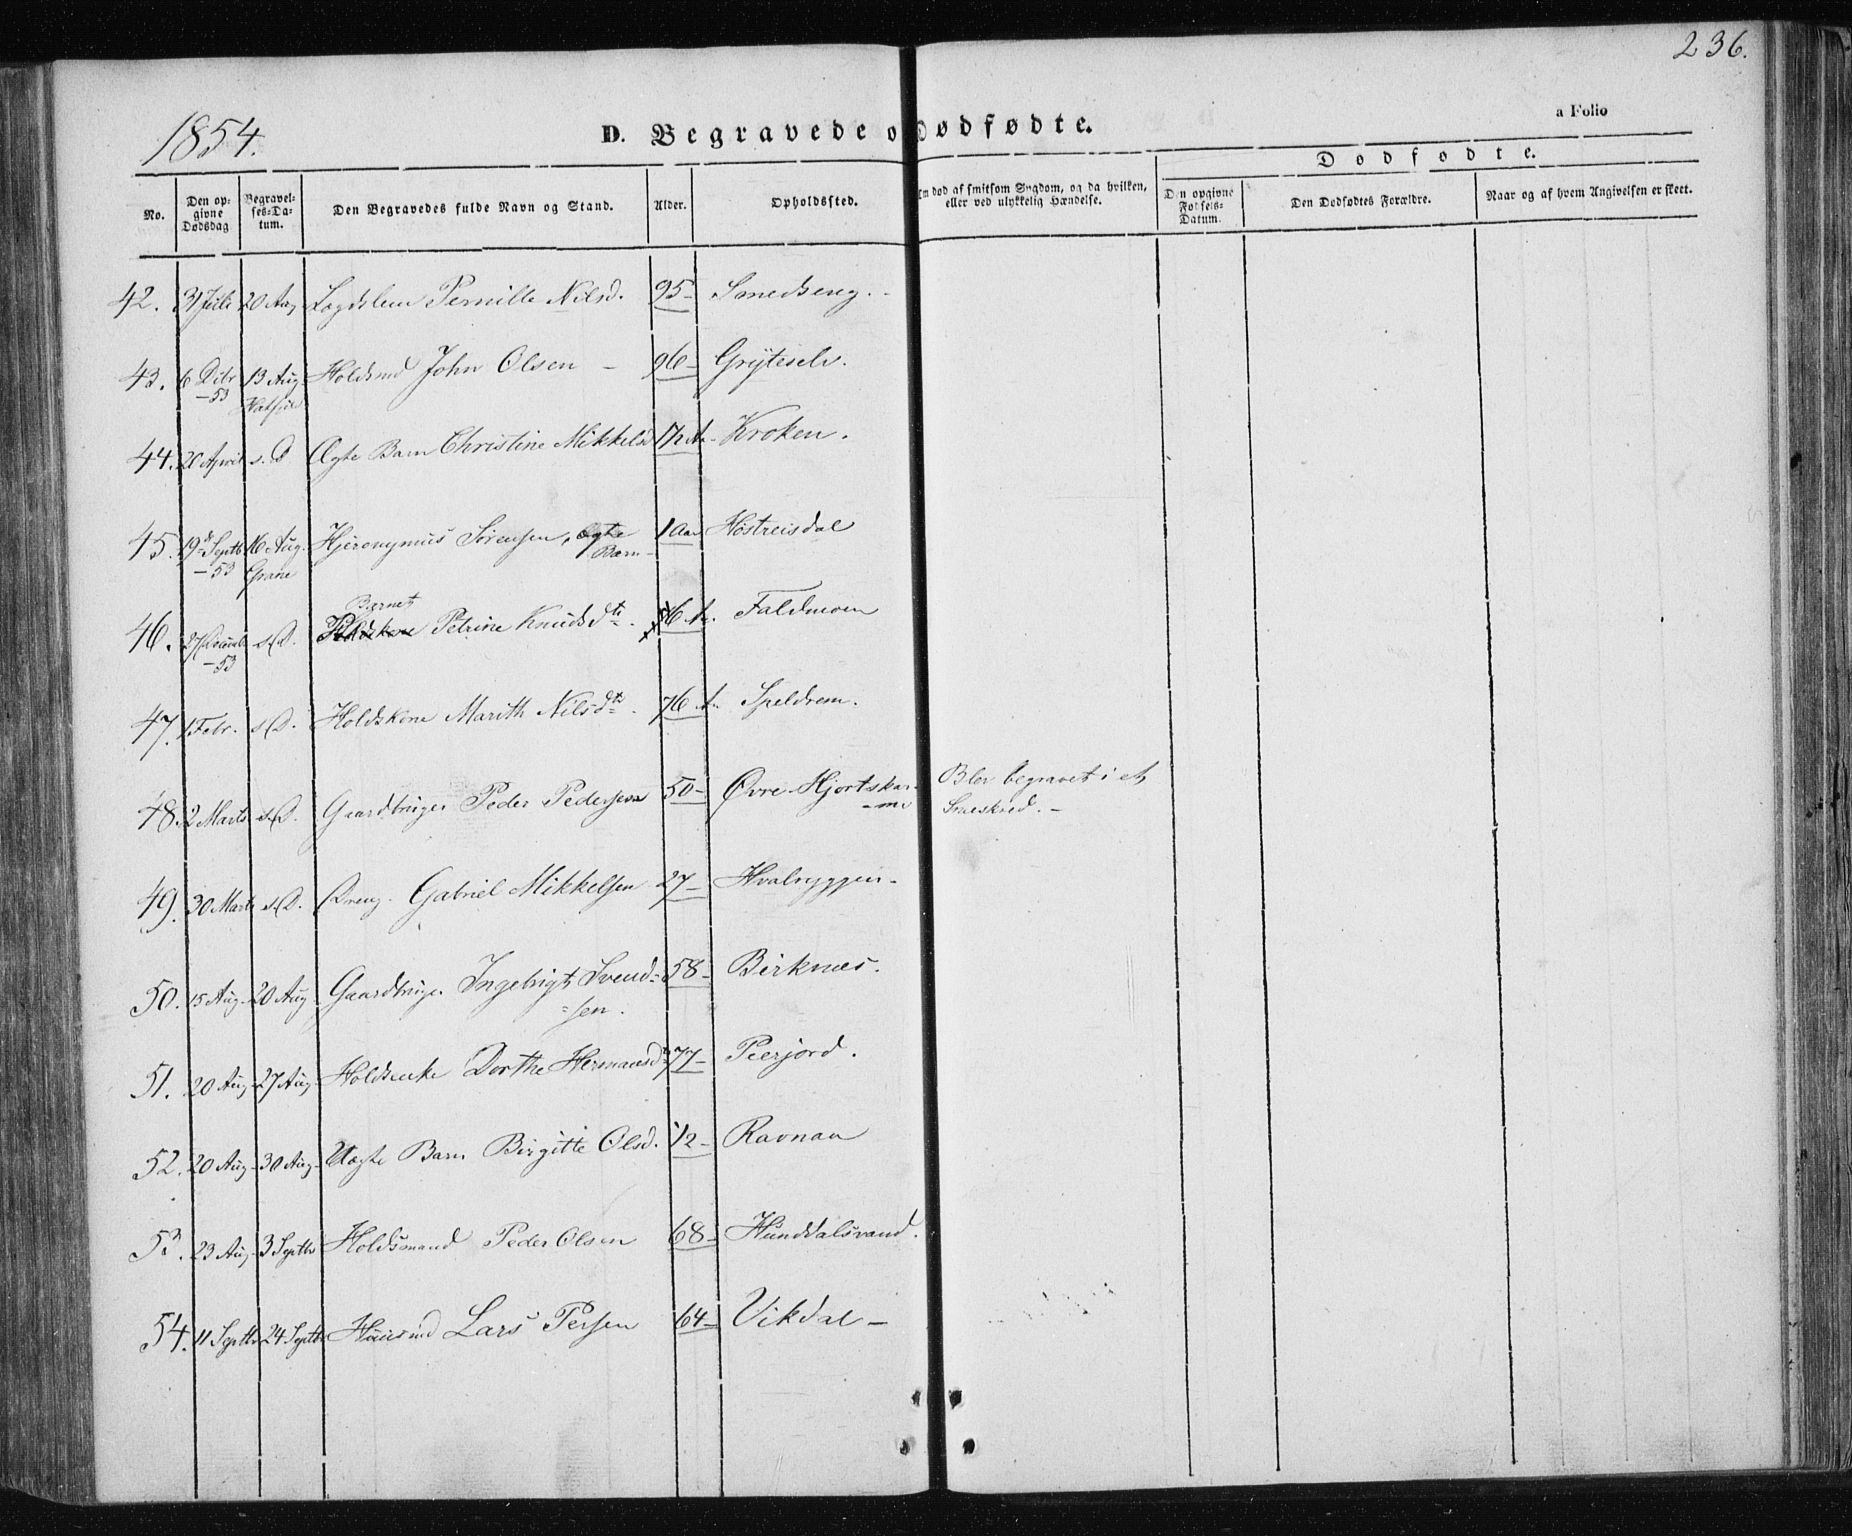 236.
1854.
D. Begravede o Dødfødte.
a Folio
Dødfødte.
No.
Den op-
givne
Dødsdag
Begravel-
ses-Da-
tum.
Den Begravedes fulde Navn og Stand.
Alder.
Opholdssted.
Om død af smitsom Sygdom, og da hvilken,
eller ved ulykkelig Hændelse.
Den opgivne
Fødsels-
Datum.
Den Dødfødtes Forældre.
Naar og af hvem Angivelsen er skeet.
42. 31 Juli 20 Aug Lægdslem Pernille Nilsd. 95- Smedseng.
43. 6 Dcbr 13 Aug Holdsmd John Olsen - 96- Grÿteselv.
-53
44. 20 April s. D Ægte Barn Christine Mikkelsd 1½ A- Kroken.
45. 19 Septb 16 Aug. Hjeronymus Sörensen, Ægte 1 Aar Höstreisdal
-53 Grane Barn-
Barnet
46. s. D. Petrine Knudsdt. 6 A. Faldmoen
-53
47. 1 Febr. s. D. Holdskone Marith Nilsdt. 76 A. Speldrem.
48. 2 Marts s. D. Gaardbruger Peder Pedersen 50- Øvre-Hjortskar- Blev begravet i et
Sneeskred.-
49. 30 Marts s. D. Dreng. Gabriel Mikkelsen 27- Hvalryggen-
50. 15 Aug- 20 Aug Gaardbruger Ingebrigt Svend= 58- Birknæs.
=sen.
51. 20 Aug- 27 Aug- Holdsenke Dorthe Hermansd 77- Peerjord.
52. 20 Aug- 30 Aug- Uægte Barn Birgitte Olsd. ½- Ravnaa
53. 23 Aug- 3 Septbr Holdsmand Peder Olsen 68- Hunddalsvand.
54. 11 Septbr 24 Septbr Huusmd Lars Persen 64- Vikdal-